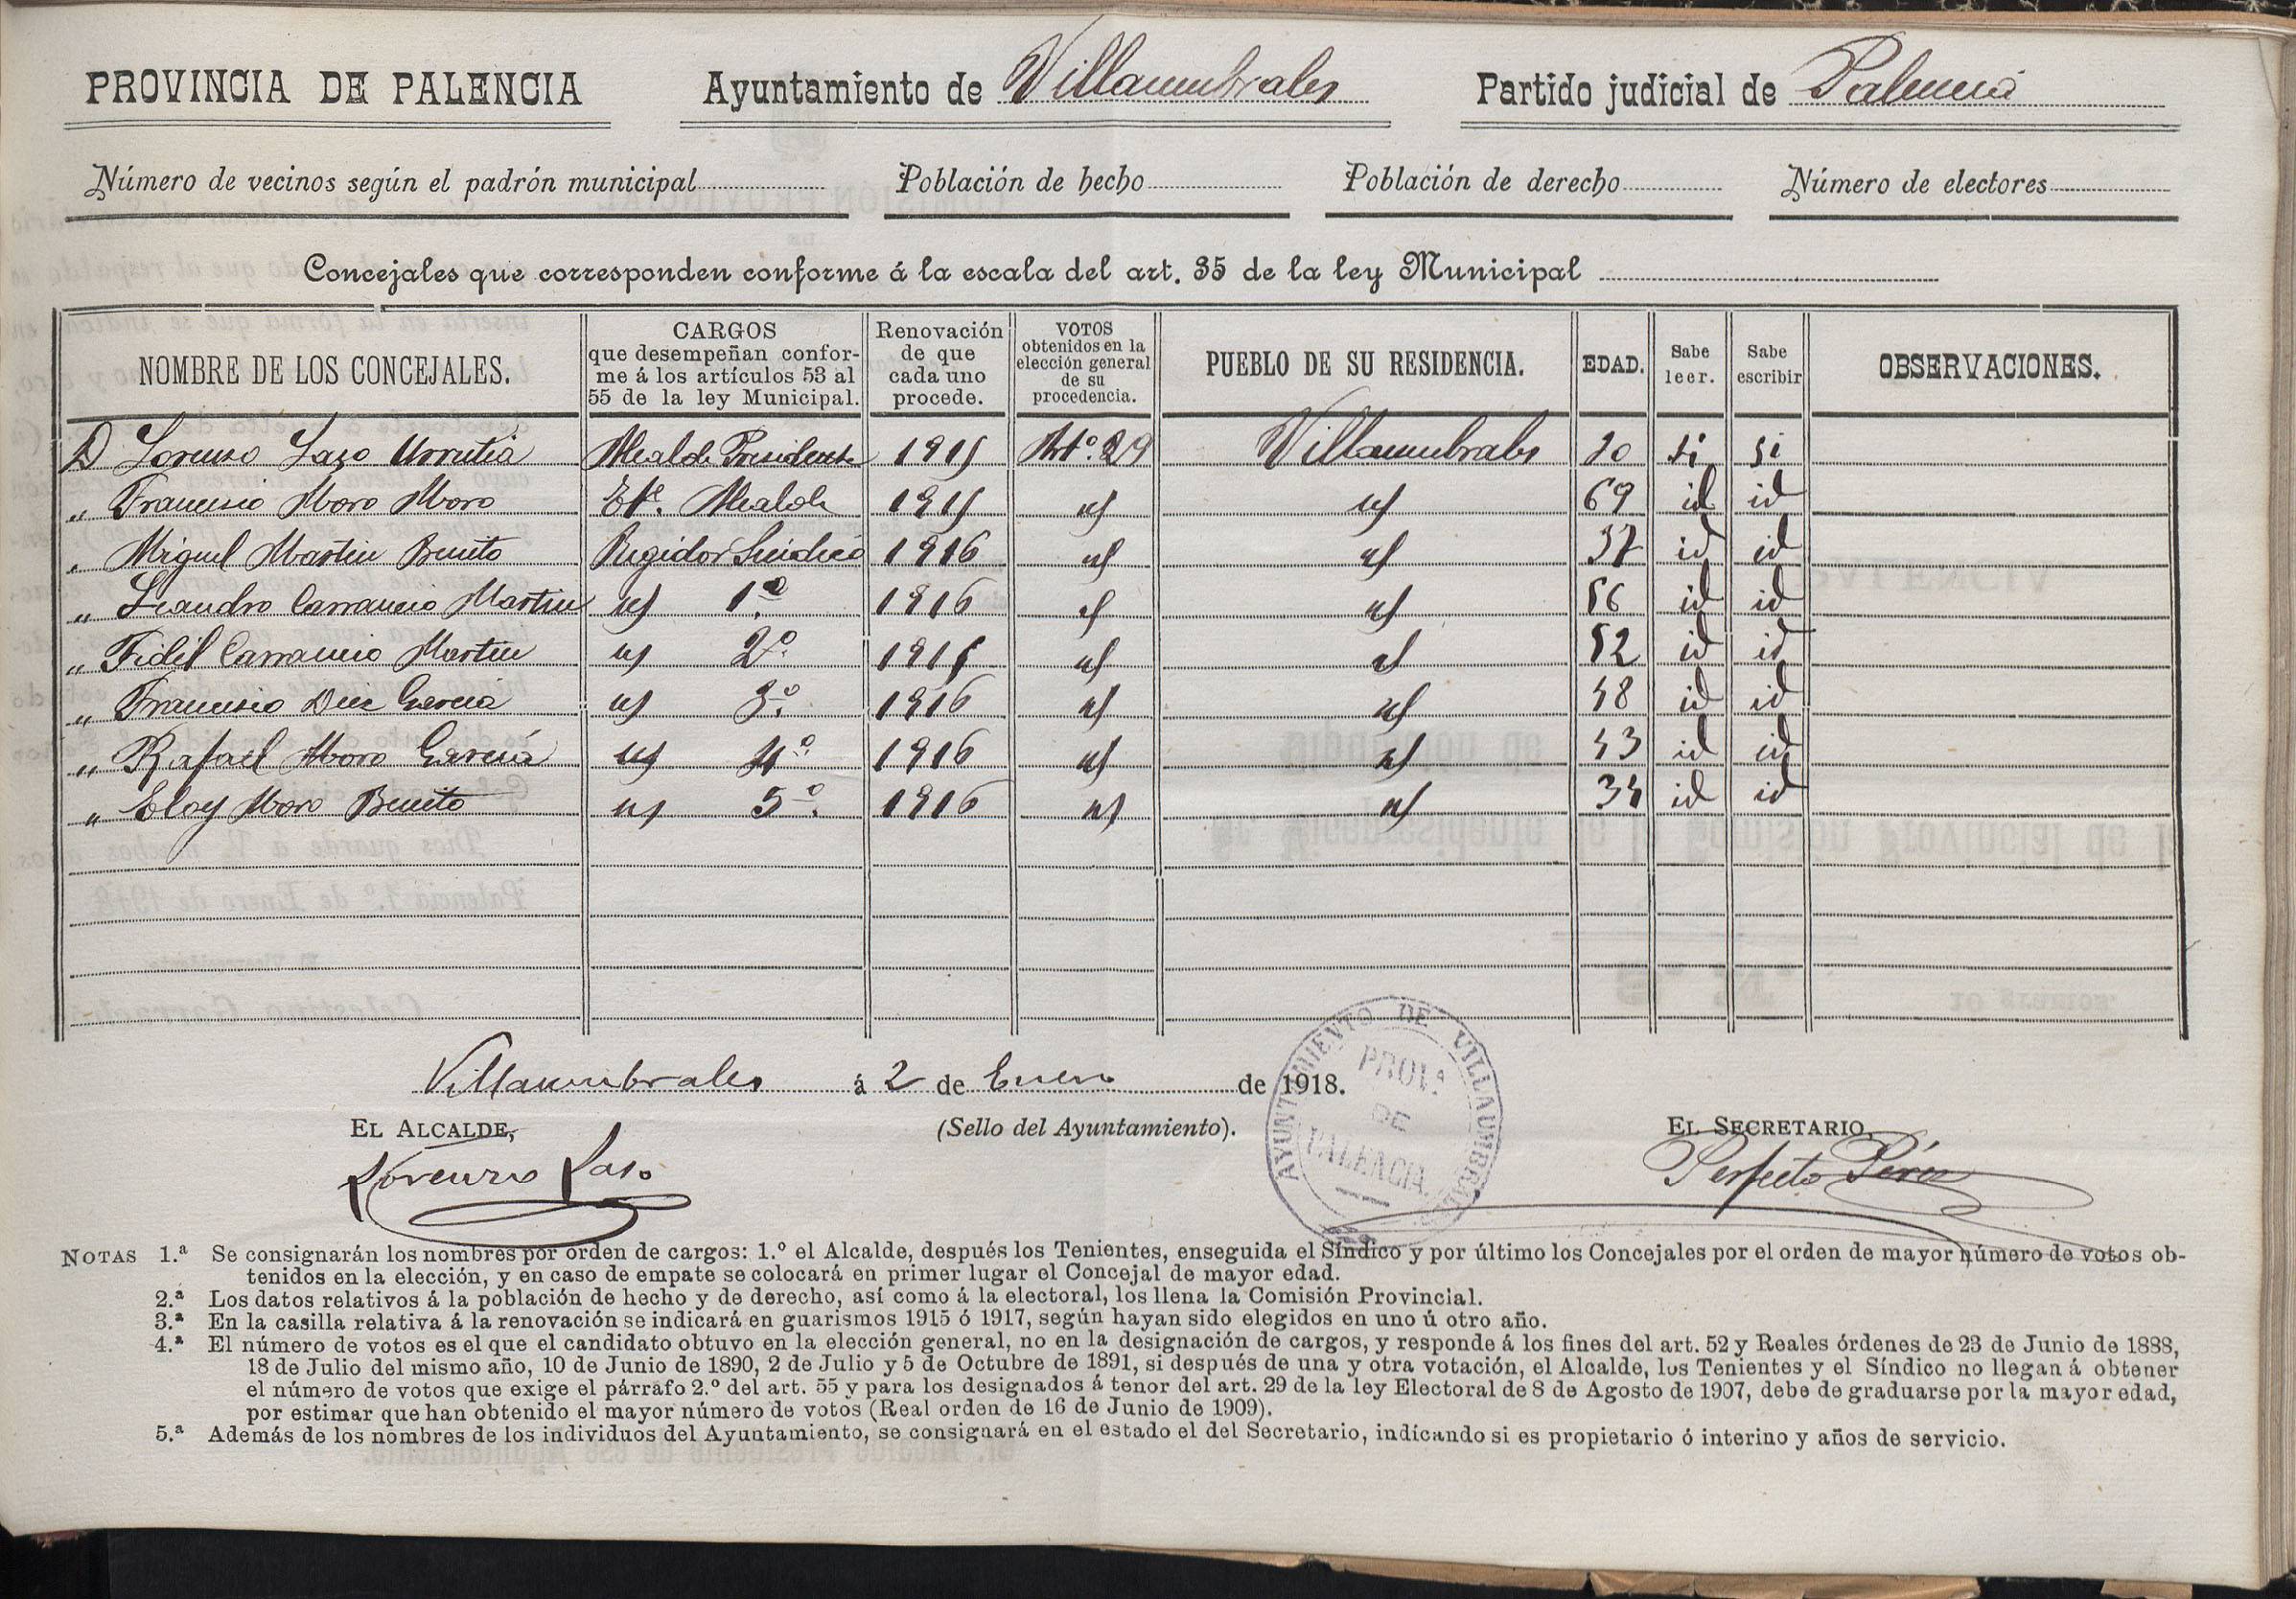 PROVINCIA DE PALENCIA Ayuntamiento de Villaumbrales Partido judicial de Palencia
Número de vecinos según el padrón municipal Población de hecho Población de derecho Número de electores
Concejales que corresponden conforme á la escala del art. 35 de la ley Municipal
NOMBRE DE LOS CONCEJALES. CARGOS que desempeñan confor- me á los artículos 53 al 55 de la ley Municipal. Renovación de que cada uno procede. VOTOS obtenidos en la elección general de su procedencia. PUEBLO DE SU RESIDENCIA. EDAD. Sabe leer. Sabe escribir OBSERVACIONES.
D Lorenzo Laso Urrutia Alcalde Presidente 1915 Art.º 29 Villaumbrales si si
„ Francisco Moro Moro Tte. Alcalde 1915 id id 69 id id
„ Miguel Martin Benito Regidor Sindico 1916 id id 37 id id
„ Leandro Carrancio Martin id 1.º 1916 id id 56 id id
„ Fidel Carrancio Martin id 2.º id id 52 id id
„ Francisco Diez Garcia id 3.º 1916 id id 48 id id
„ Rafael Moro Garcia id 4.º 1916 id id 43 id id
„ Eloy Moro Benito id 5.º 1916 id id 34 id id
Villaumbrales á 2 de Enero de 1918.
EL ALCALDE, (Sello del Ayuntamiento). EL SECRETARIO,
Lorenzo Laso Perfecto Pérez
AYUNTAMIENTO DE VILLAUMBRALES
PROV.ª
DE
PALENCIA.
NOTAS 1.ª Se consignarán los nombres por orden de cargos: 1.º el Alcalde, después los Tenientes, enseguida el Síndico y por último los Concejales por el orden de mayor número de votos ob-
tenidos en la elección, y en caso de empate se colocará en primer lugar el Concejal de mayor edad.
2.ª Los datos relativos á la población de hecho y de derecho, así como á la electoral, los llena la Comisión Provincial.
3.ª En la casilla relativa á la renovación se indicará en guarismos 1915 ó 1917, según hayan sido elegidos en uno ú otro año.
4.ª El número de votos es el que el candidato obtuvo en la elección general, no en la designación de cargos, y responde á los fines del art. 52 y Reales órdenes de 23 de Junio de 1888,
18 de Julio del mismo año, 10 de Junio de 1890, 2 de Julio y 5 de Octubre de 1891, si después de una y otra votación, el Alcalde, los Tenientes y el Síndico no llegan á obtener
el número de votos que exige el párrafo 2.º del art. 55 y para los designados á tenor del art. 29 de la ley Electoral de 8 de Agosto de 1907, debe de graduarse por la mayor edad,
por estimar que han obtenido el mayor número de votos (Real orden de 16 de Junio de 1909).
5.ª Además de los nombres de los individuos del Ayuntamiento, se consignará en el estado el del Secretario, indicando si es propietario ó interino y años de servicio.